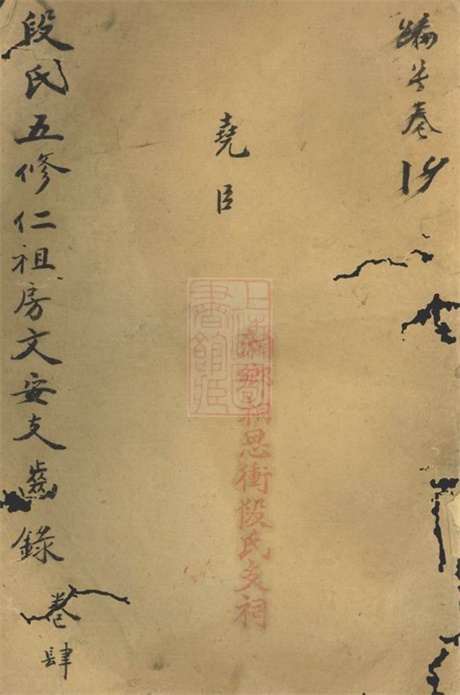 堯臣
湘鄉相思衝段氏支祠
上海圖
書館藏
段氏五修仁祖房文安支齒錄 卷肆